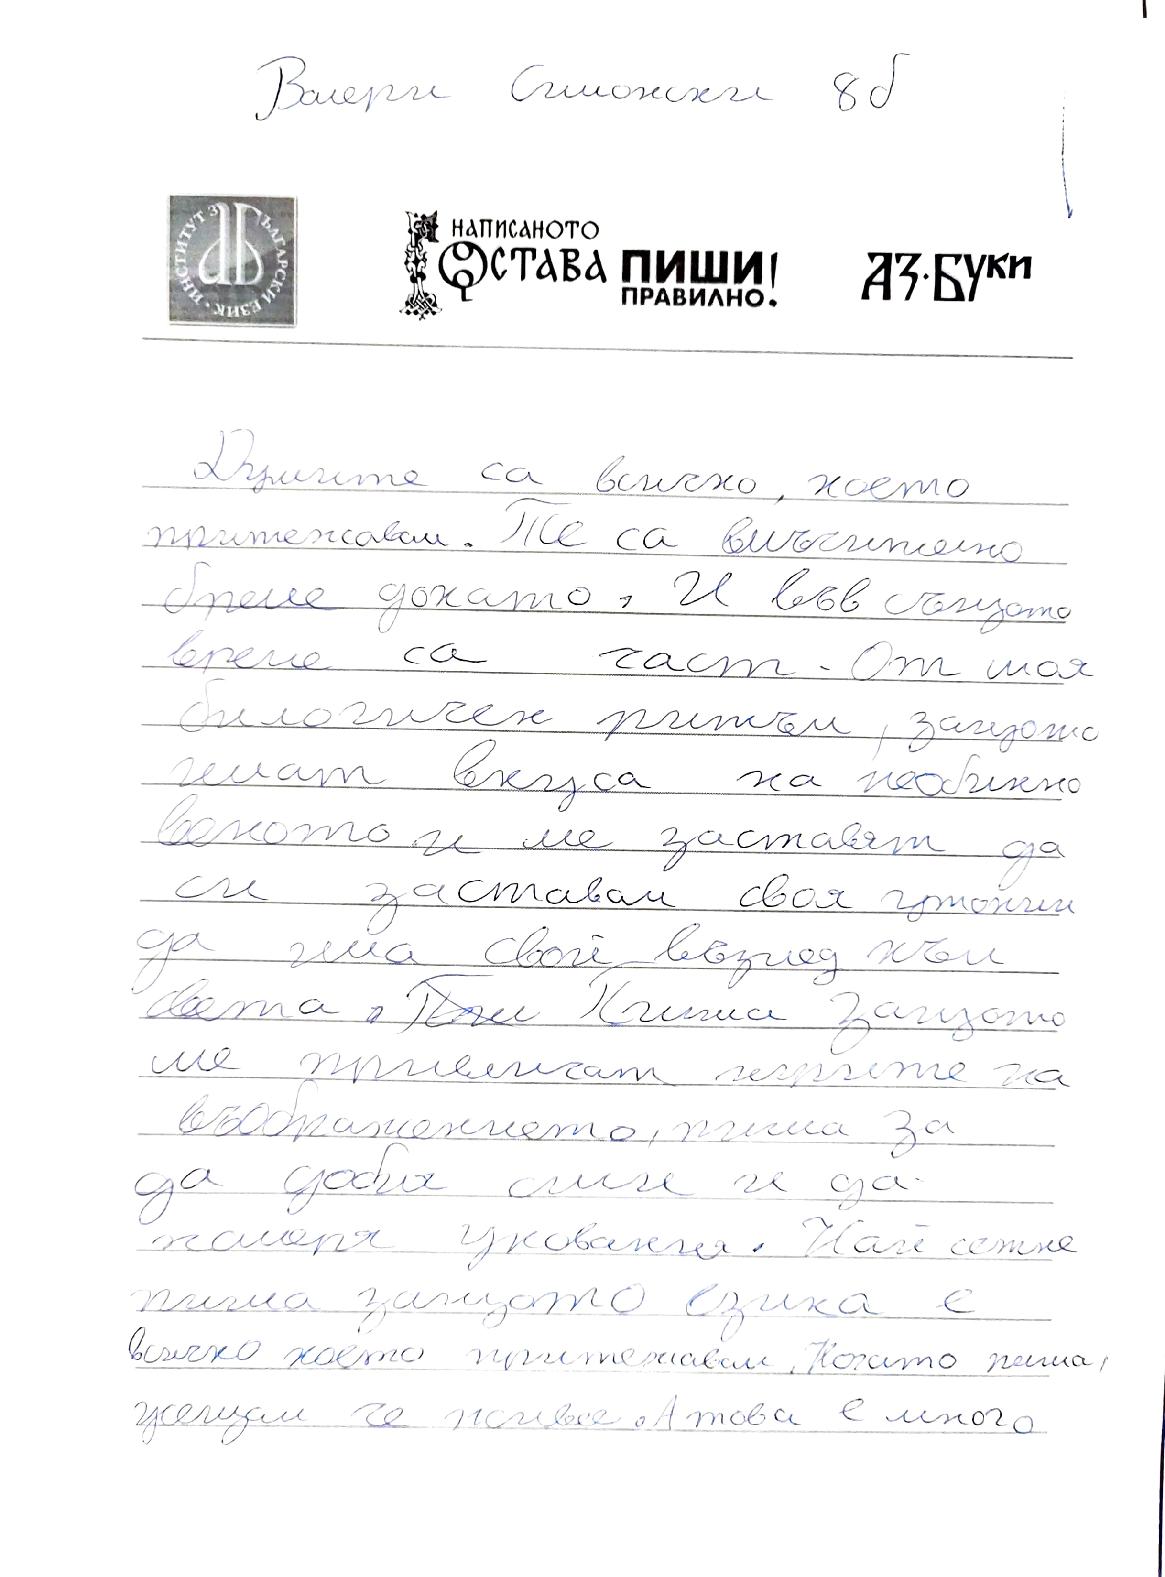 Валери Симонски 8б
ИНСТИТУТ ЗА БЪЛГАРСКИ ЕЗИК
НАПИСАНОТО
ОСТАВА ПИШИ
ПРАВИЛНО!
АЗ·БУКИ
Думите са всичко, което
притежавам. Те са
бреме докато, И във същото
време са част. От моя
билогичен ритъм, защото
имат вкуса на необикно
веното и ме заставят да
си заставам своя
да има свой възглед към
света. Пиша защото
ме привличат игрите на
въображението, пиша за
да добия смис и да
намеря упование. Най сетне
пиша защото езика е
всичко което притежавам. Когато пиша,
усещам че живея. А това е много